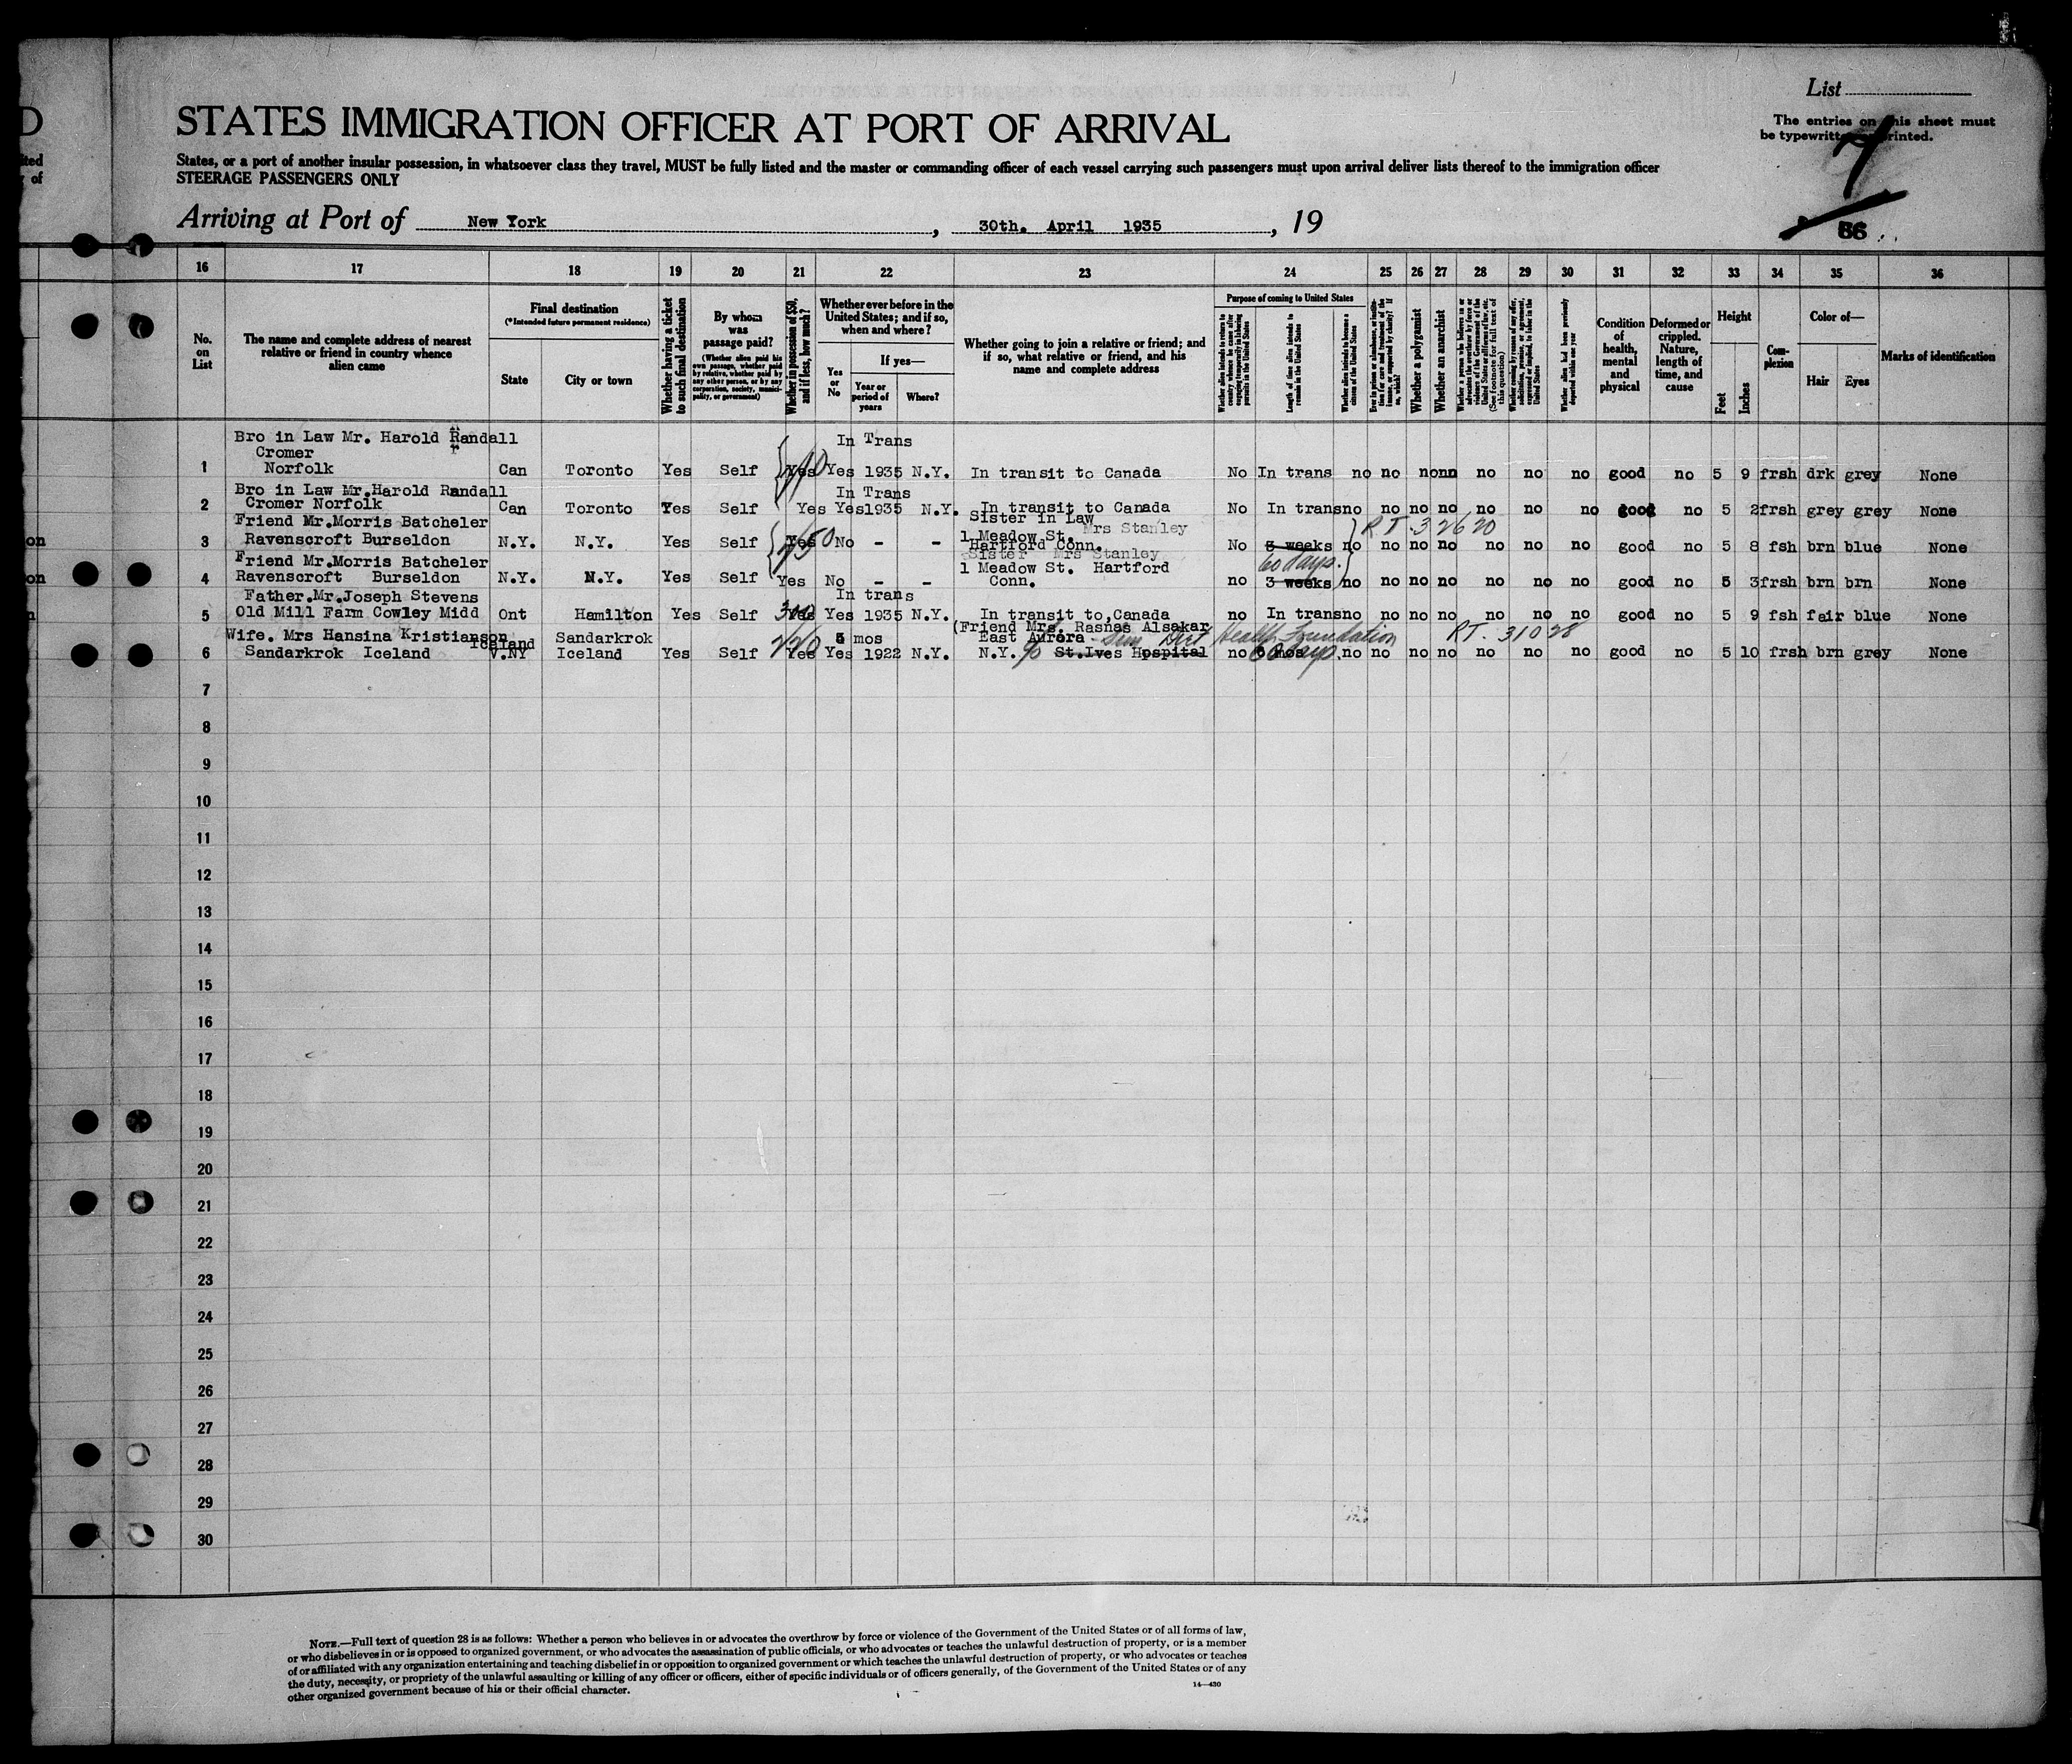 D
STATES IMMIGRATION OFFICER AT PORT OF ARRIVAL
List
The entries on this sheet must
be typewritten or printed.
7
ited
y of
States, or a port of another insular possession, in whatsoever class they travel, MUST be fully listed and the master or commanding officer of each vessel carrying such passengers must upon arrival deliver lists thereof to the immigration officer
STEERAGE PASSENGERS ONLY
Arriving at Port of New York, 30th. April 1935, 19
16 17 18 19 20 21 22 23 24 25 26 27 28 29 30 31 32 33 34 35 36
No. on List
The name and complete address of nearest relative or friend in country whence alien came
Final destination
(*Intended future permanent residence)
State
City or town
Whether having a ticket to such final destination
By whom was passage paid?
(Whether alien paid his own passage, whether paid by relative, whether paid by any other person, or by any corporation, society, municipality, or government)
Whether in possession of $50, and if less, how much?
Whether ever before in the United States; and if so, when and where?
Yes or No
If yes—
Year or period of years
Where?
Whether going to join a relative or friend; and if so, what relative or friend, and his name and complete address
Purpose of coming to United States
Whether alien intends to return to country whence he came after engaging temporarily in laboring pursuits in the United States
Length of time alien intends to remain in the United States
Whether alien intends to become a citizen of the United States
Whether a polygamist
Whether an anarchist
Whether alien had been previously deported within one year
Condition of health, mental and physical
Deformed or crippled. Nature, length of time, and cause
Height
Feet
Inches
Complexion
Color of—
Hair
Eyes
Marks of identification
Bro in Law Mr. Harold Randall In Trans
Cromer
1 Norfolk Can Toronto Yes Self Yes Yes 1935 N.Y. In transit to Canada No In trans no no no nn no no no good no 5 9 frsh drk grey None
Bro in Law Mr.Harold Randall In Trans
2 Cromer Norfolk Can Toronto Yes Self Yes Yes 1935 N.Y. In transit to Canada No In trans no no no no no no no good no 5 2 frsh grey grey None
Friend Mr.Morris Batcheler Sister in Law Mrs Stanley R T. 32620
on 3 Ravenscroft Burseldon N.Y. N.Y. Yes Self Yes No - - 1 Meadow St. Hartford Conn. No 3 weeks no no no no no no no good no 5 8 fsh brn blue None
Friend Mr.Morris Batcheler Sister Mrs Stanley 60 days.
on 4 Ravenscroft Burseldon N.Y. N.Y. Yes Self Yes No - - 1 Meadow St. Hartford Conn. no 3 weeks no no no no no no no good no 5 3 frsh brn brn None
Father.Mr.Joseph Stevens In trans
n 5 Old Mill Farm Cowley Midd Ont Hamilton Yes Self 300 Yes Yes 1935 N.Y. In transit to Canada no In trans no no no no no no no good no 5 9 fsh fair blue None
Wife. Mrs Hansina Kristianson Iceland Sandarkrok (Friend Mrs. Rasnas Alsakar East Aurora Health Foundation RT. 31028
6 Sandarkrok Iceland V.NY Iceland Yes Self Yes 6 mos Yes 1922 N.Y. N.Y. c/o St.Ives Hospital no 60 days no no no no no no no good no 5 10 frsh brn grey None
7
8
9
10
11
12
13
14
15
16
17
18
19
20
21
22
23
24
25
26
27
28
29
30
NOTE.—Full text of question 28 is as follows: Whether a person who believes in or advocates the overthrow by force or violence of the Government of the United States or of all forms of law,
or who disbelieves in or is opposed to organized government, or who advocates the assassination of public officials, or who advocates or teaches the unlawful destruction of property, or is a member
of or affiliated with any organization entertaining and teaching disbelief in or opposition to organized government or which teaches the unlawful destruction of property, or who advocates or teaches
the duty, necessity, or propriety of the unlawful assaulting or killing of any officer or officers, either of specific individuals or of officers generally, of the Government of the United States or of any
other organized government because of his or their official character.
14—430